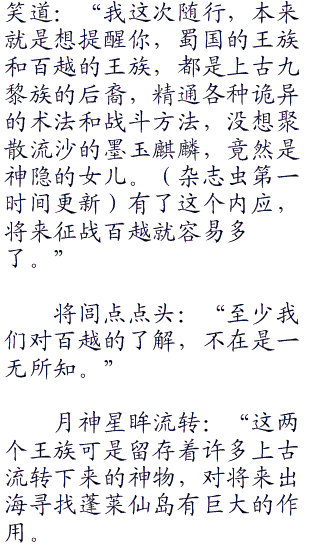 笑道：“我这次随行，本来
就是想提醒你，蜀国的王族
和百越的王族，都是上古九
黎族的后裔，精通各种诡异
的术法和战斗方法，没想聚
散流沙的墨玉麒麟，竟然是
神隐的女儿。（杂志虫第一
时间更新）有了这个内应，
将来征战百越就容易多
了。”
将闾点点头：“至少我
们对百越的了解，不在是一
无所知。”
月神星眸流转：“这两
个王族可是留存着许多上古
流转下来的神物，对将来出
海寻找蓬莱仙岛有巨大的作
用。